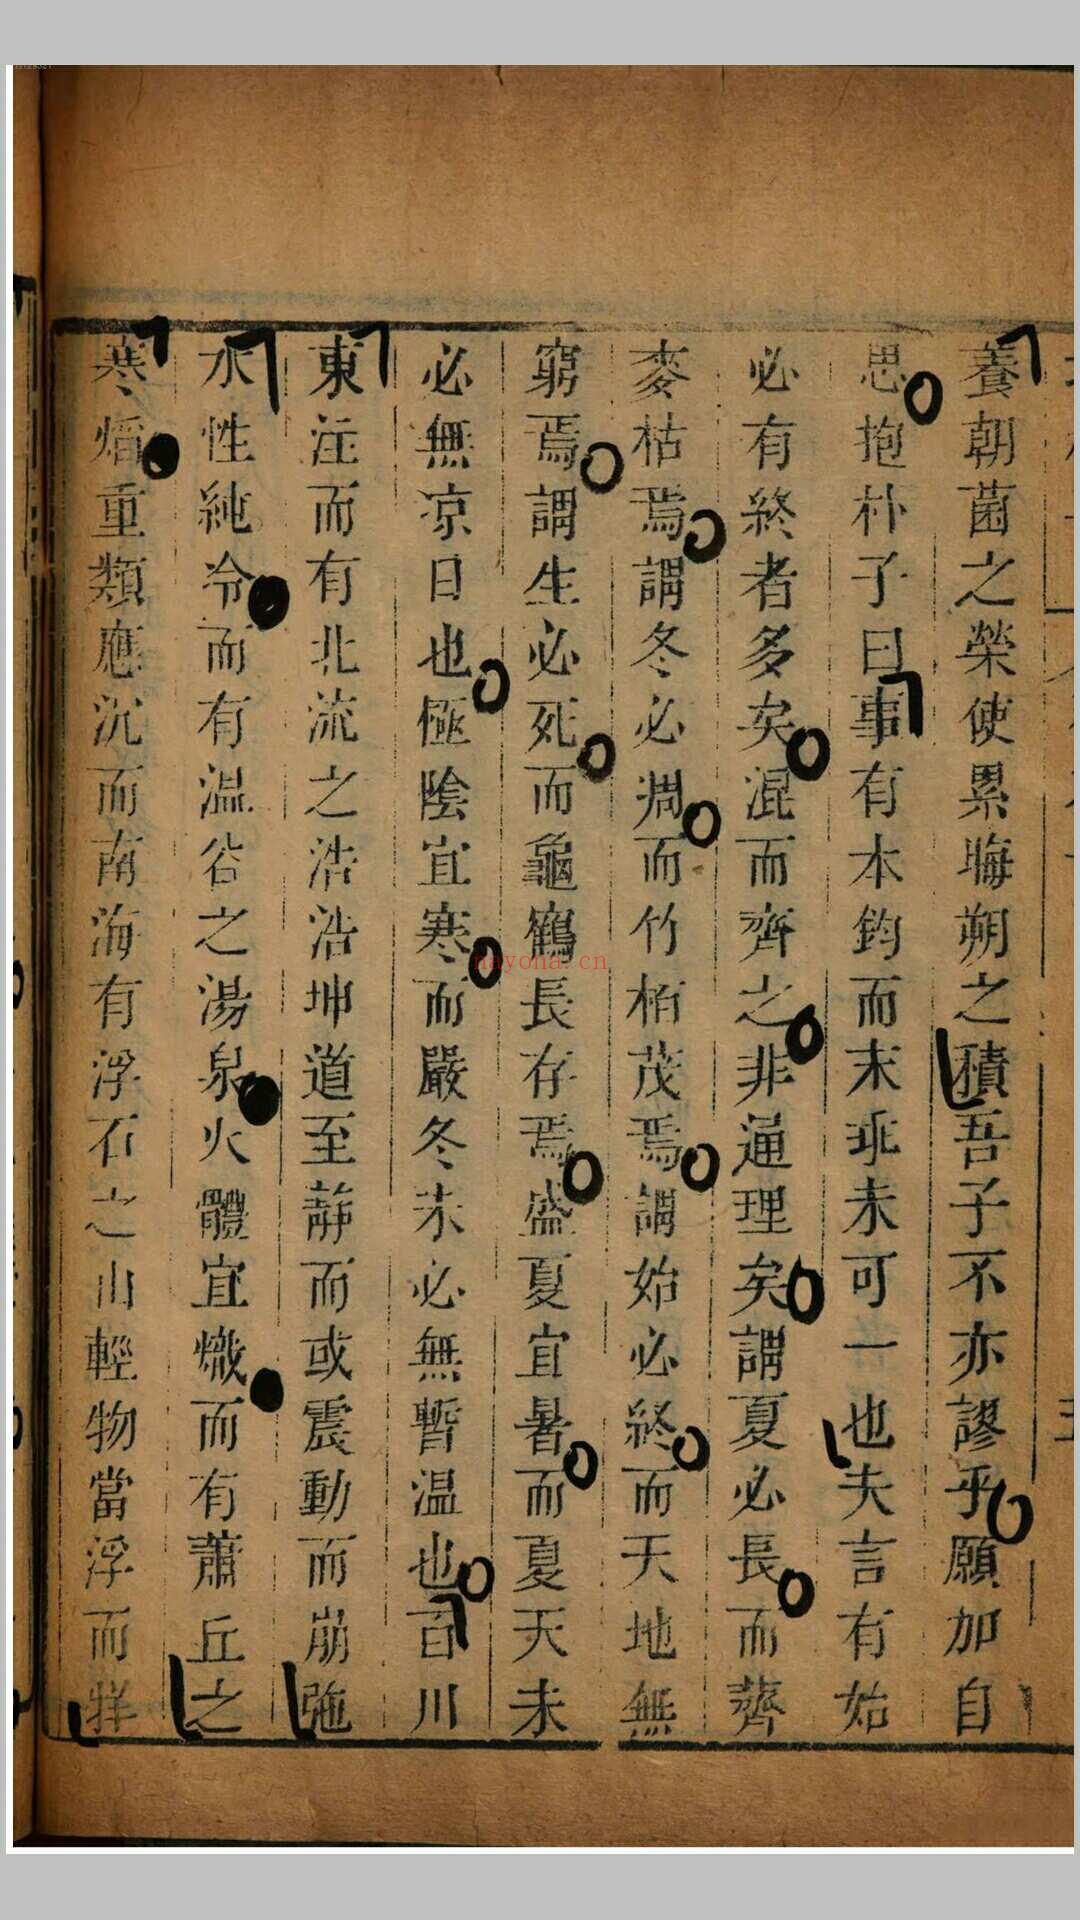 養朝菌之榮使累晦朔之積吾子不亦謬乎願加自
思抱朴子曰事有本鈞而末乖未可一也夫言有始
必有終者多矣混而齊之非通理矣謂夏必長而薺
麥枯焉謂冬必凋而竹栢茂焉謂始必終而天地無
窮焉謂生必死而龜鶴長存焉盛夏宜暑而夏天未
必無凉日也極陰宜寒而嚴冬未必無暫温也百川
東注而有北流之浩浩坤道至静而或震動而崩弛
水性純冷而有温谷之湯泉火體宜熾而有蕭丘之
寒熖重類應沉而南海有浮石之山輕物當浮而牂
nayona.cn